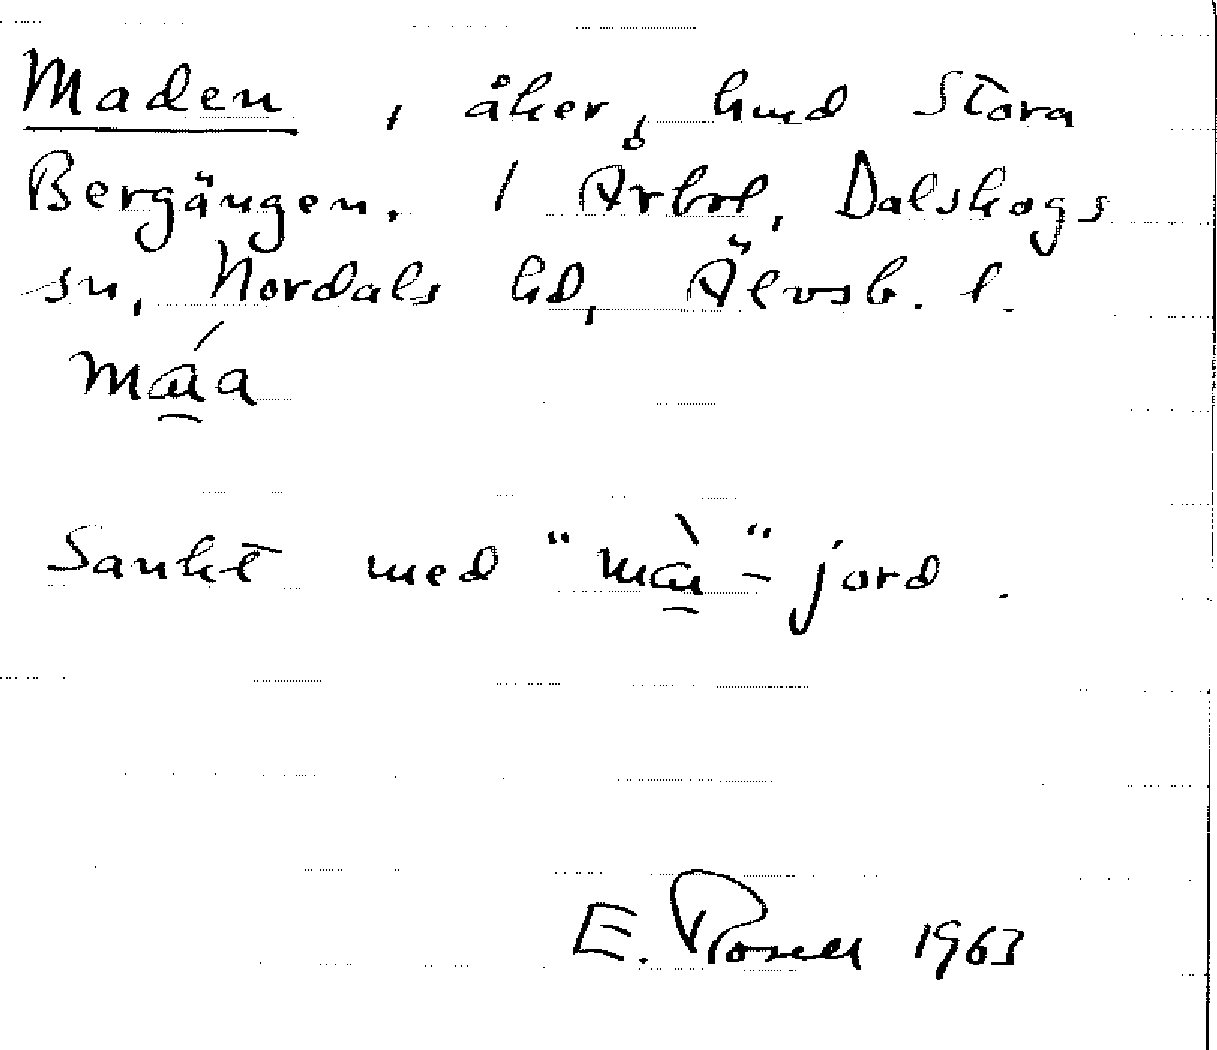 Maden, åker, hmd Stora
Bergängen. 1 Årbol, Dalskogs
sn, Nordals hd, Älvsb. l.
Sankt med "  "-jord.
E. 1963